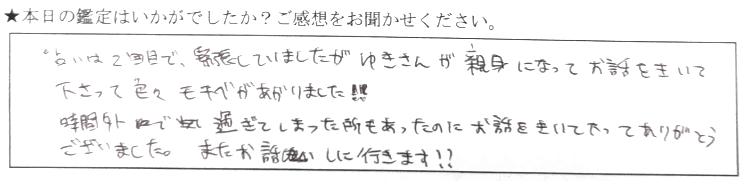 ★本日の鑑定はいかがでしたか？ご感想をお聞かせください。
占いは2回目で、緊張していましたが ゆきさんが 親身になって お話をきいて
下さって 色々 モチベがあがりました!!!
時間外 で 過ぎてしまった所もあったのに お話をきいて下さって ありがとう
ございました。 またお話 しに行きます!!